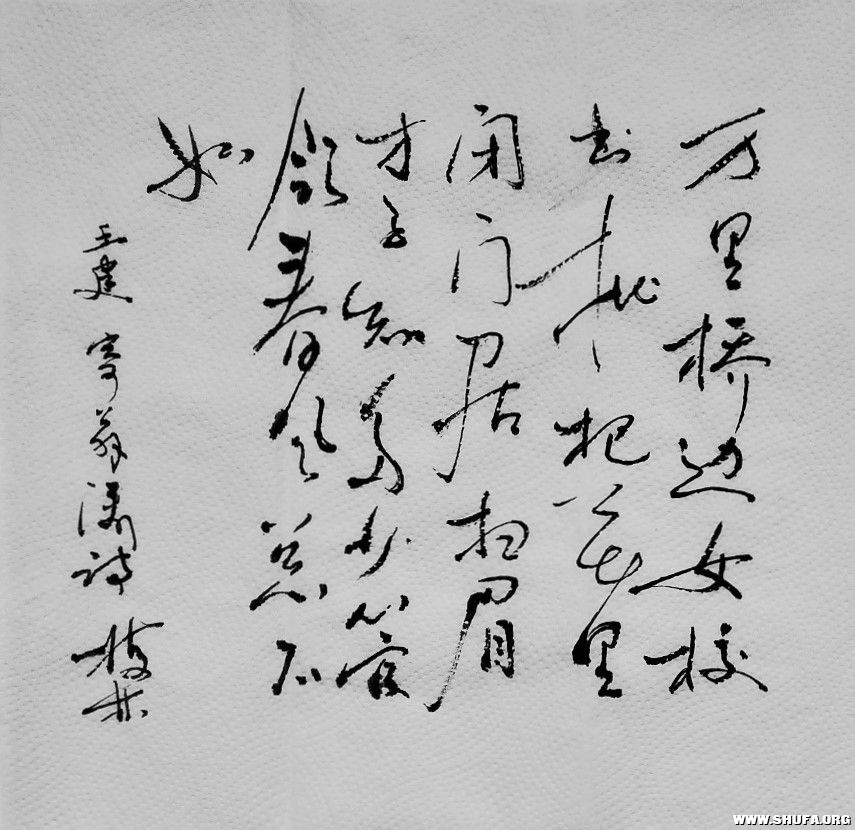 万里桥边女校
书枇杷花里
闭门居扫眉
才子知多少管
领春风总不
如
王建寄薛涛诗
WWW.SHUFA.ORG